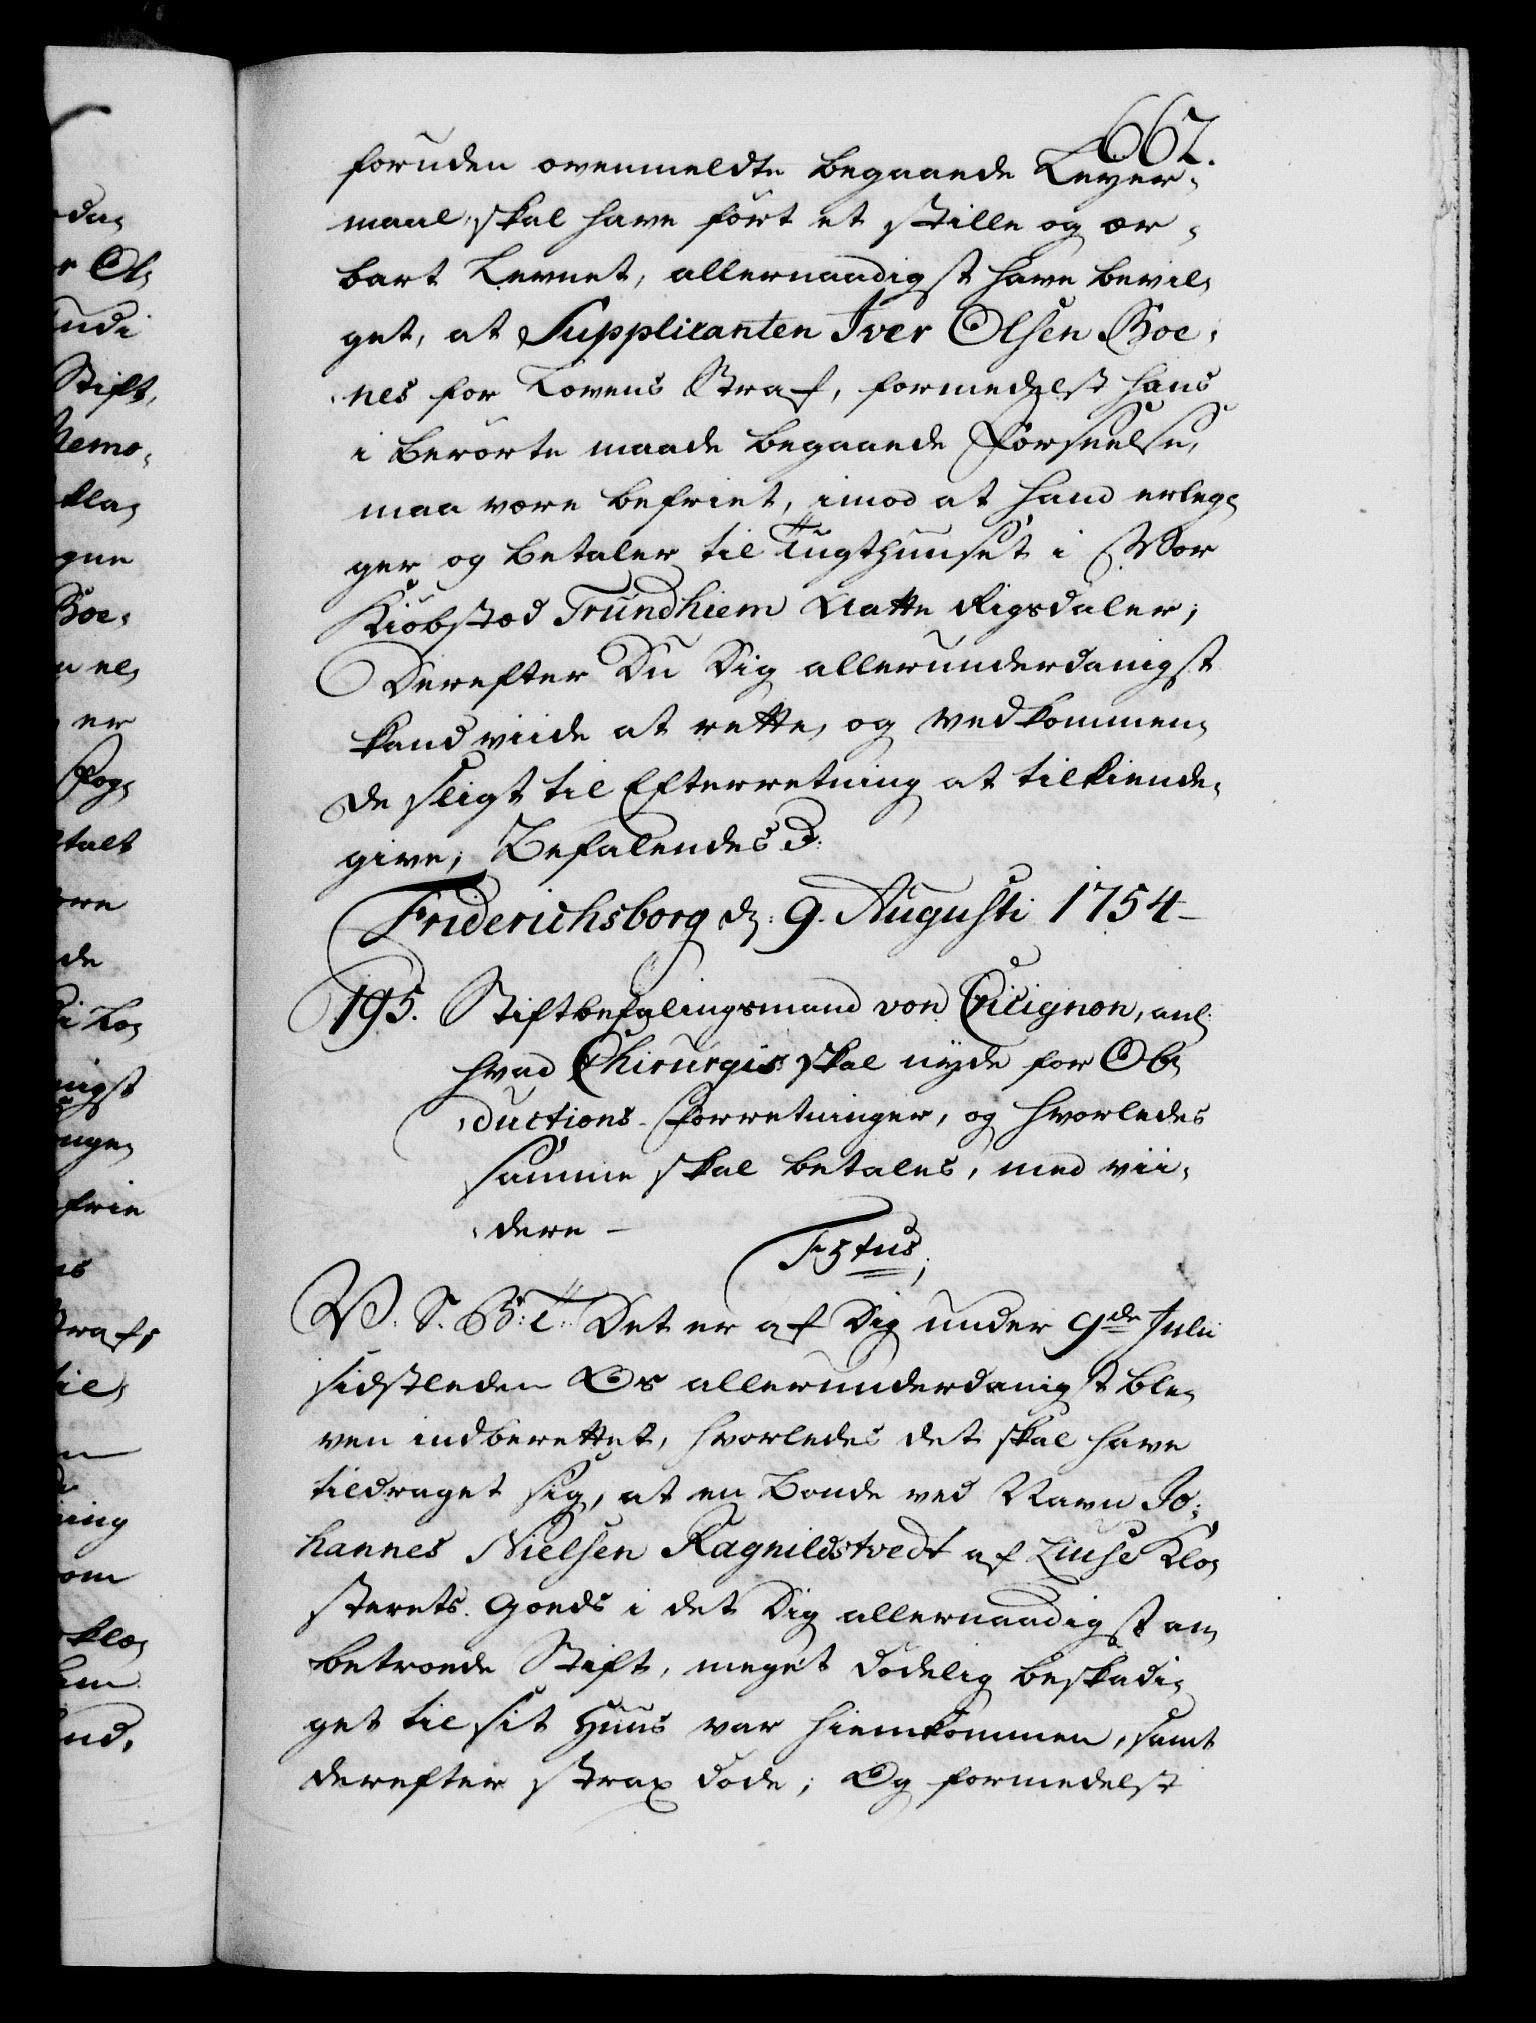 662.
foruden ovenmeldte begaaede Leyer-
maal, skal have ført et stille og ær-
bart Levnet, allernaadigst have bevil-
get, at Supplicanten Iver Olsen Boe-
nes for Lovens Straf, formedelst hans
i berørte maade begaaede Forseelse,
maa være befriet, imod at hand erleg-
ger og betaler til Tugthuuset i Vor
Kiøbstæd Trundhiem Aatte Rigsdaler;
Derefter Du Dig allerunderdanigst
kand viide at rette, og vedkommen-
de sligt til Efterretning at tilkiende-
give; Befalendes D:
Friderichsborg d: 9. Augusti 1754
195. Stiftbefalingsmand von Cicignon, anl:
hvad Chirurgis skal nyde for Ob-
ductions-Forretninger, og hvorledes
samme skal betales, med vii-
dere –
F 5tus,
V. S. B: T: Det er af Dig under 9de Julii
sidstleden Os allerunderdanigst ble-
ven indberettet, hvorledes det skal have
tildraget sig, at en Bonde ved Navn Jo-
hannes Nielsen Ragnildstvedt af Liuse Klo-
sterets Goeds i det Dig allernaadigst an-
betroede Stift, meget dødelig beskadi-
get til sit Huus var hiemkommen, samt
derefter strax døde; Og formedelst